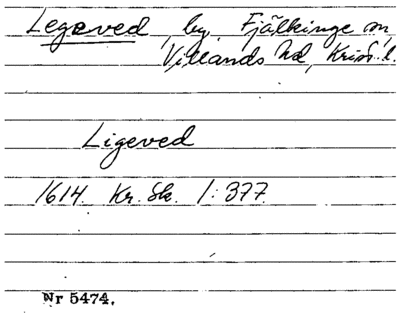 Legeved, by, Fjälkinge sn,
Villands hd, Krist. l.
Ligeved
1614 Kr. Sk. 1:377.
Nr 5474.